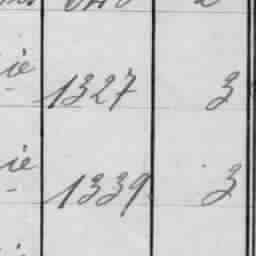 ie 1327 3
ie 1339 3